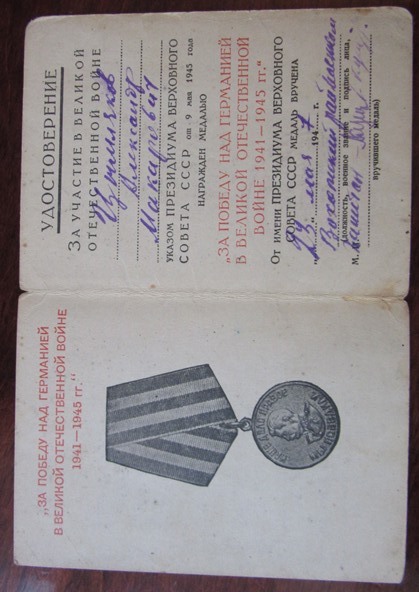 „ЗА ПОБЕДУ НАД ГЕРМАНИЕЙ
В ВЕЛИКОЙ ОТЕЧЕСТВЕННОЙ ВОЙНЕ
1941—1945 гг.“
НАШЕ ДЕЛО ПРАВОЕ
МЫ ПОБЕДИЛИ
УДОСТОВЕРЕНИЕ
ЗА УЧАСТИЕ В ВЕЛИКОЙ
ОТЕЧЕСТВЕННОЙ ВОЙНЕ
Александр
Макарович
УКАЗОМ ПРЕЗИДИУМА ВЕРХОВНОГО
СОВЕТА СССР от 9 мая 1945 года
НАГРАЖДЕН МЕДАЛЬЮ
„ЗА ПОБЕДУ НАД ГЕРМАНИЕЙ
В ВЕЛИКОЙ ОТЕЧЕСТВЕННОЙ
ВОЙНЕ 1941—1945 гг.“
От имени ПРЕЗИДИУМА ВЕРХОВНОГО
СОВЕТА СССР МЕДАЛЬ ВРУЧЕНА
мая 194 г.
Вохомский райвоенком
(должность, военное звание и подпись лица,
М. П. капитан
вручившего медаль)